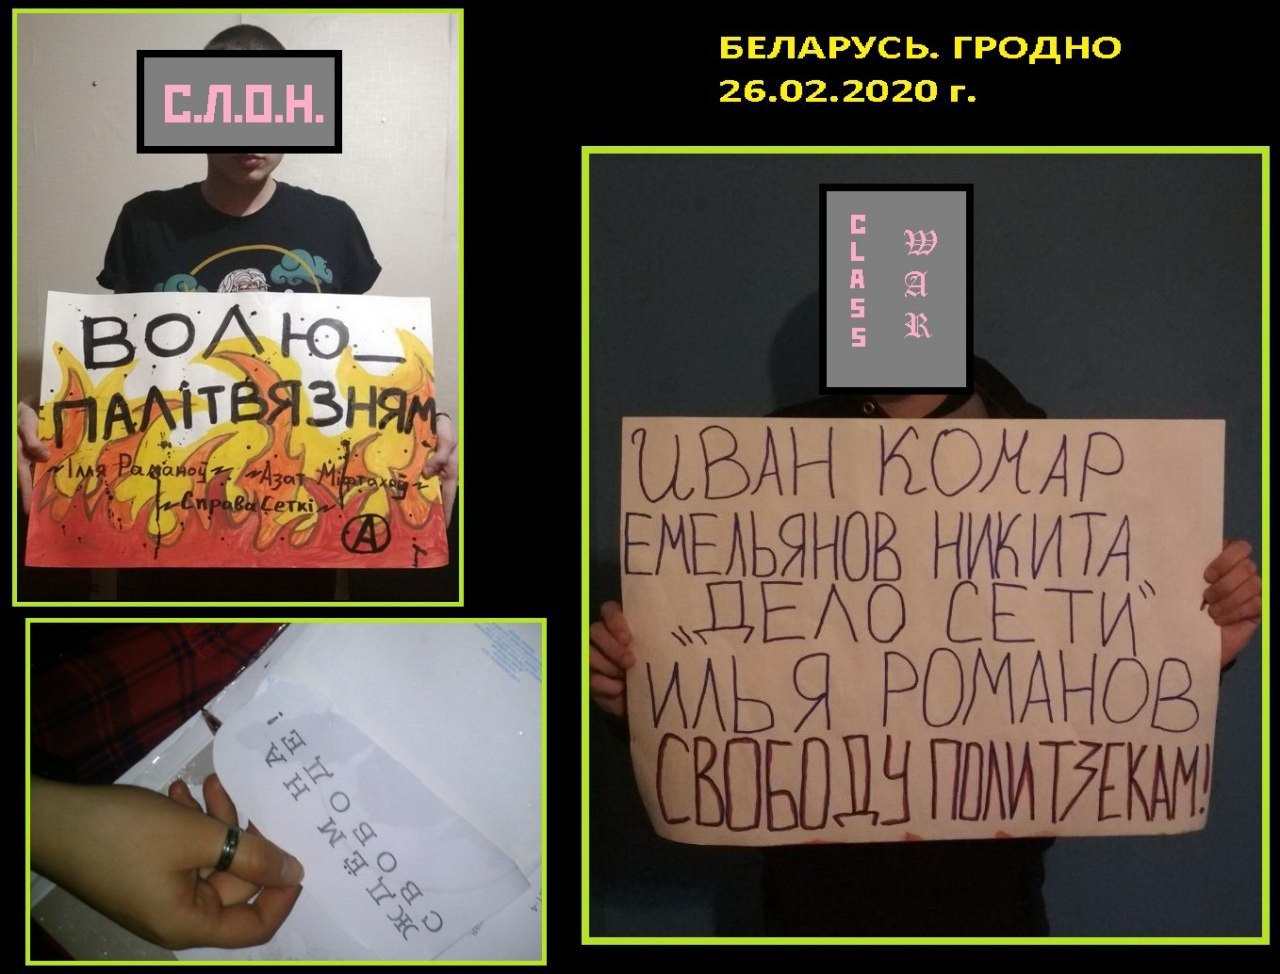 БЕЛАРУСЬ. ГРОДНО
26.02.2020 г.
С.Л.О.Н.
ВОЛЮ_
ПАЛІТВЯЗНЯМ
~Ілля Раманоў~ ~Азат Міфтахоў~
~Справа Сеткі~
A
CLASS
WAR
ИВАН КОМАР
ЕМЕЛЬЯНОВ НИКИТА
„ДЕЛО СЕТИ"
ИЛЬЯ РОМАНОВ
СВОБОДУ ПОЛИТЗЕКАМ!
ЖДЁМ НА
СВОБОДЕ!